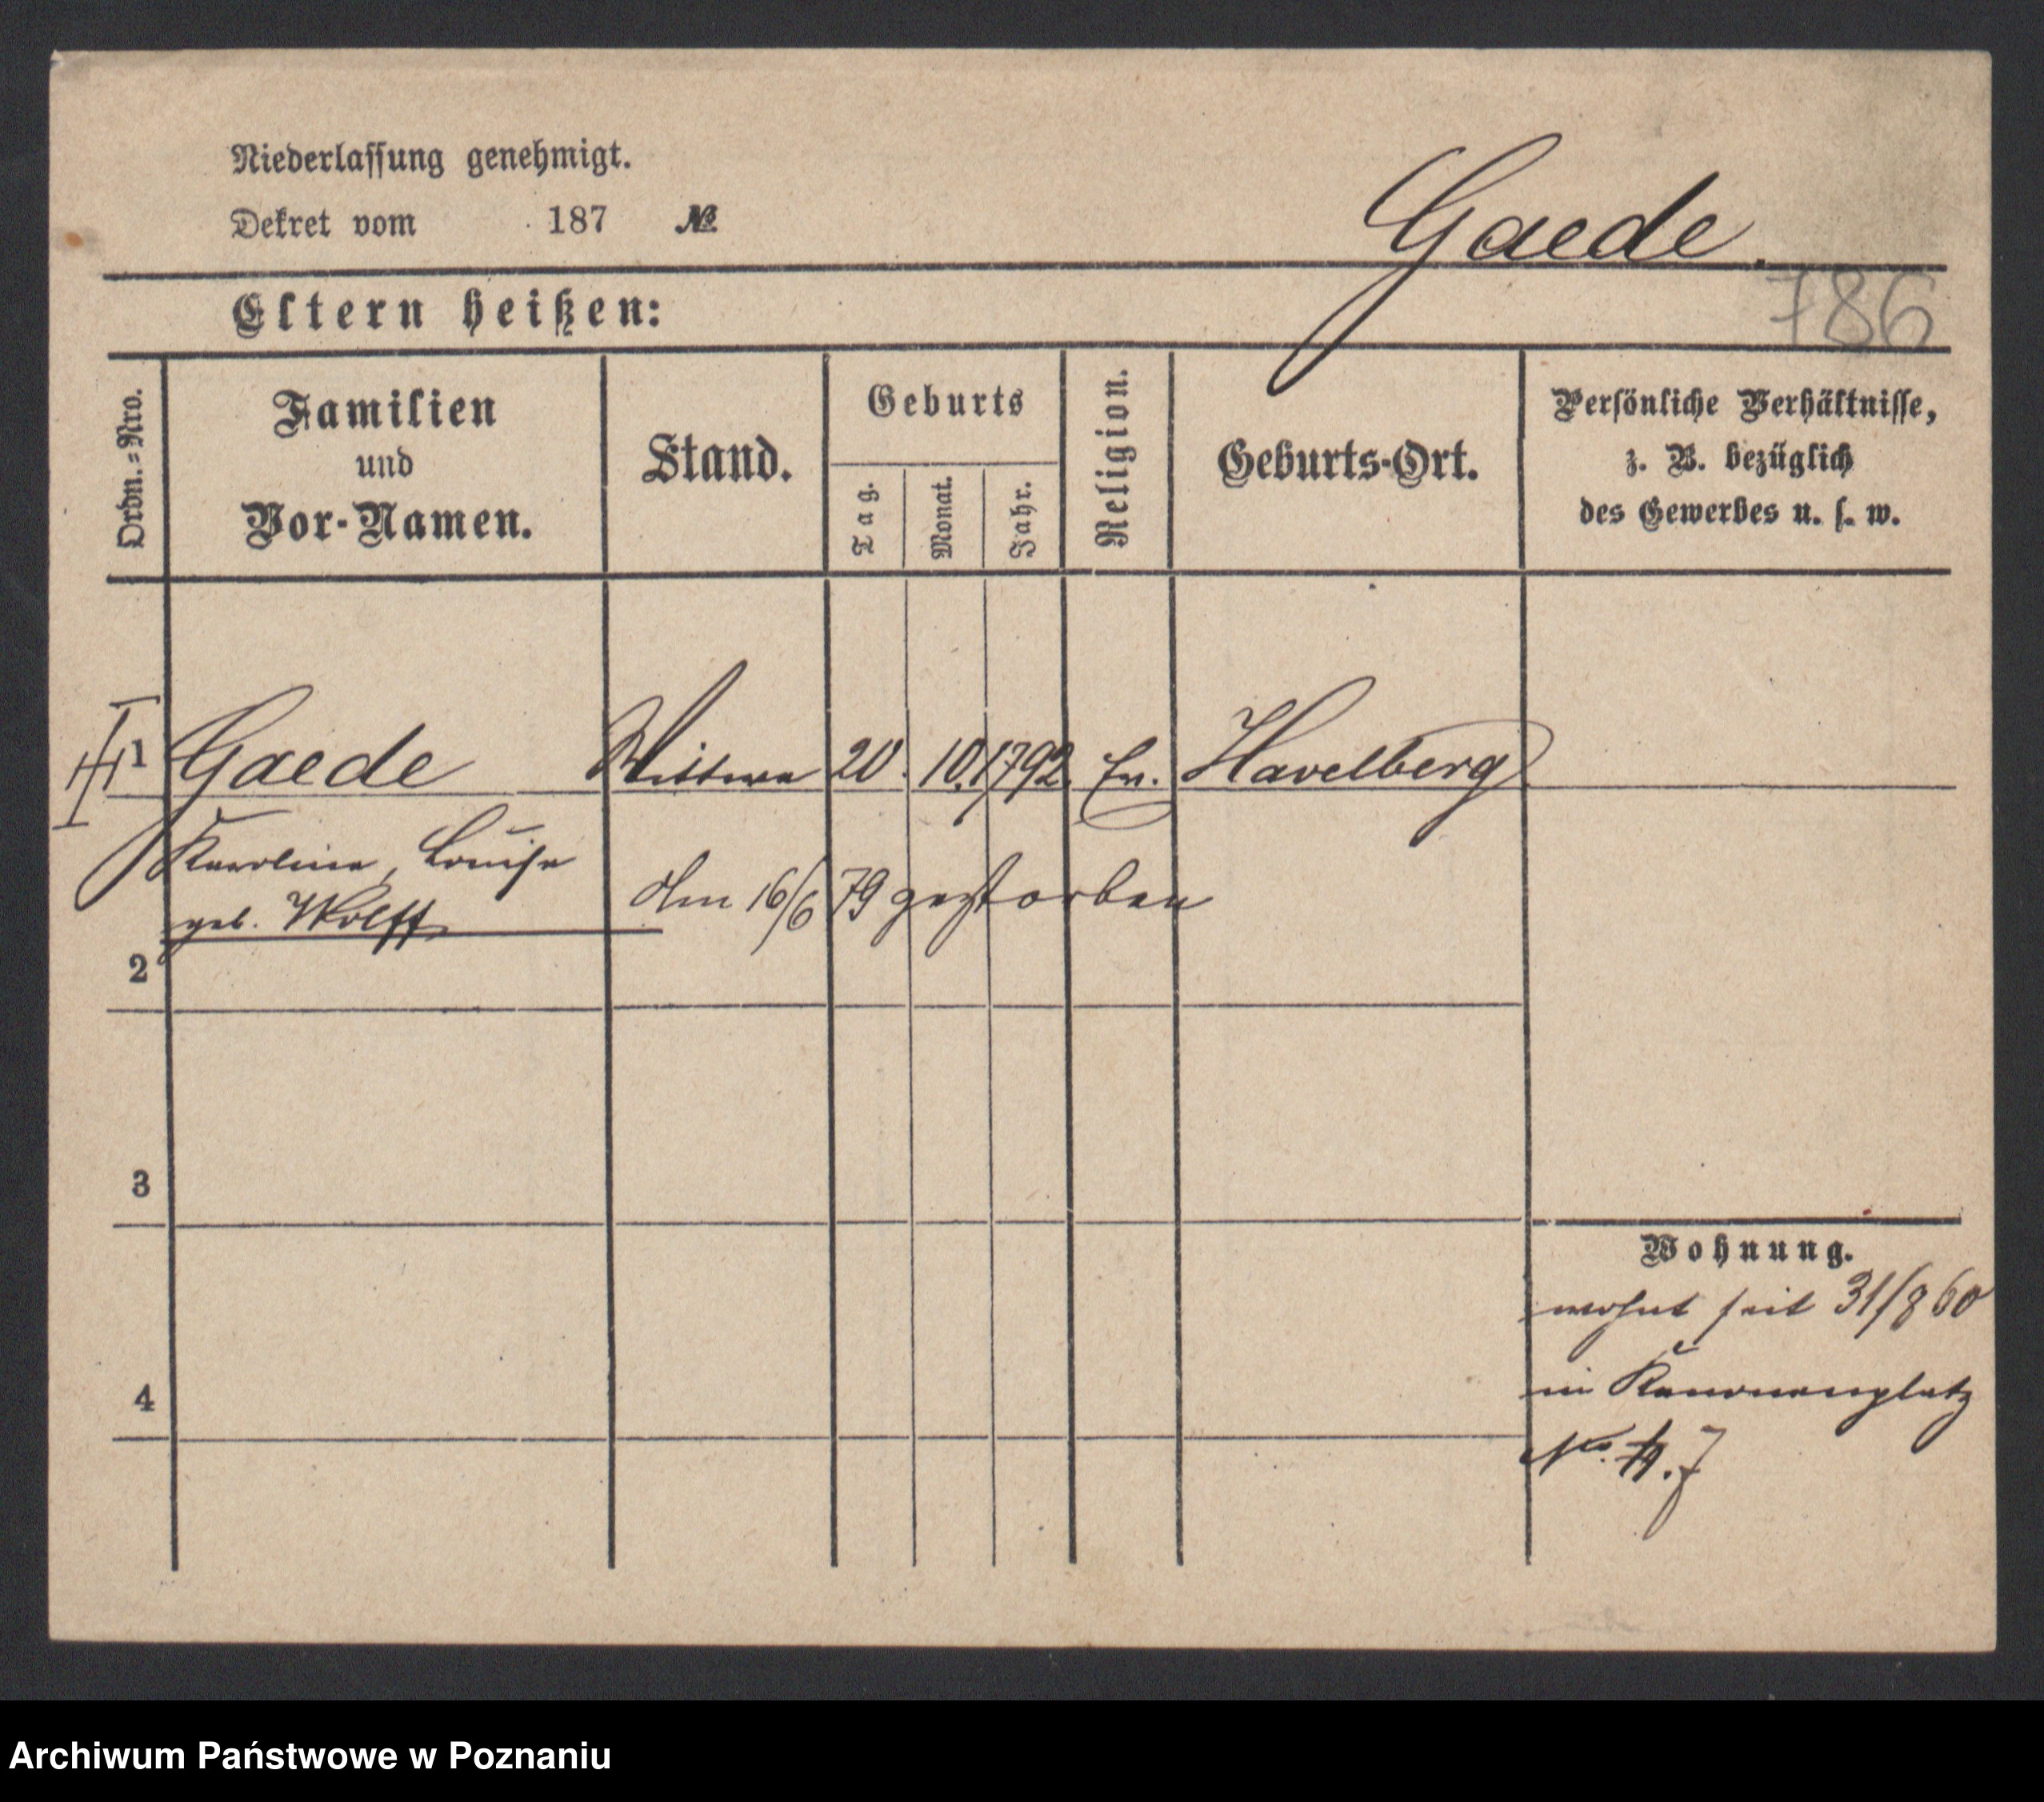 Niederlassung genehmigt.
Dekret vom 187 №
Gaede.
Eltern heißen:
786
Ordn.=Nro.
Familien
und
Vor-Namen.
Stand.
Geburts
Tag.
Monat.
Jahr.
Religion.
Geburts-Ort.
Persönliche Verhältnisse,
z. B. bezüglich
des Gewerbes u. s. w.
1 Gaede Wittwe 20. 10. 1792. Ev. Havelberg
Karoline, Louise
geb. Wolff
den 16/6 79 gestorben
2
3
Wohnung.
wohnt seit 31/8 60
in Kanonenplatz
4
No. 7
Archiwum Państwowe w Poznaniu